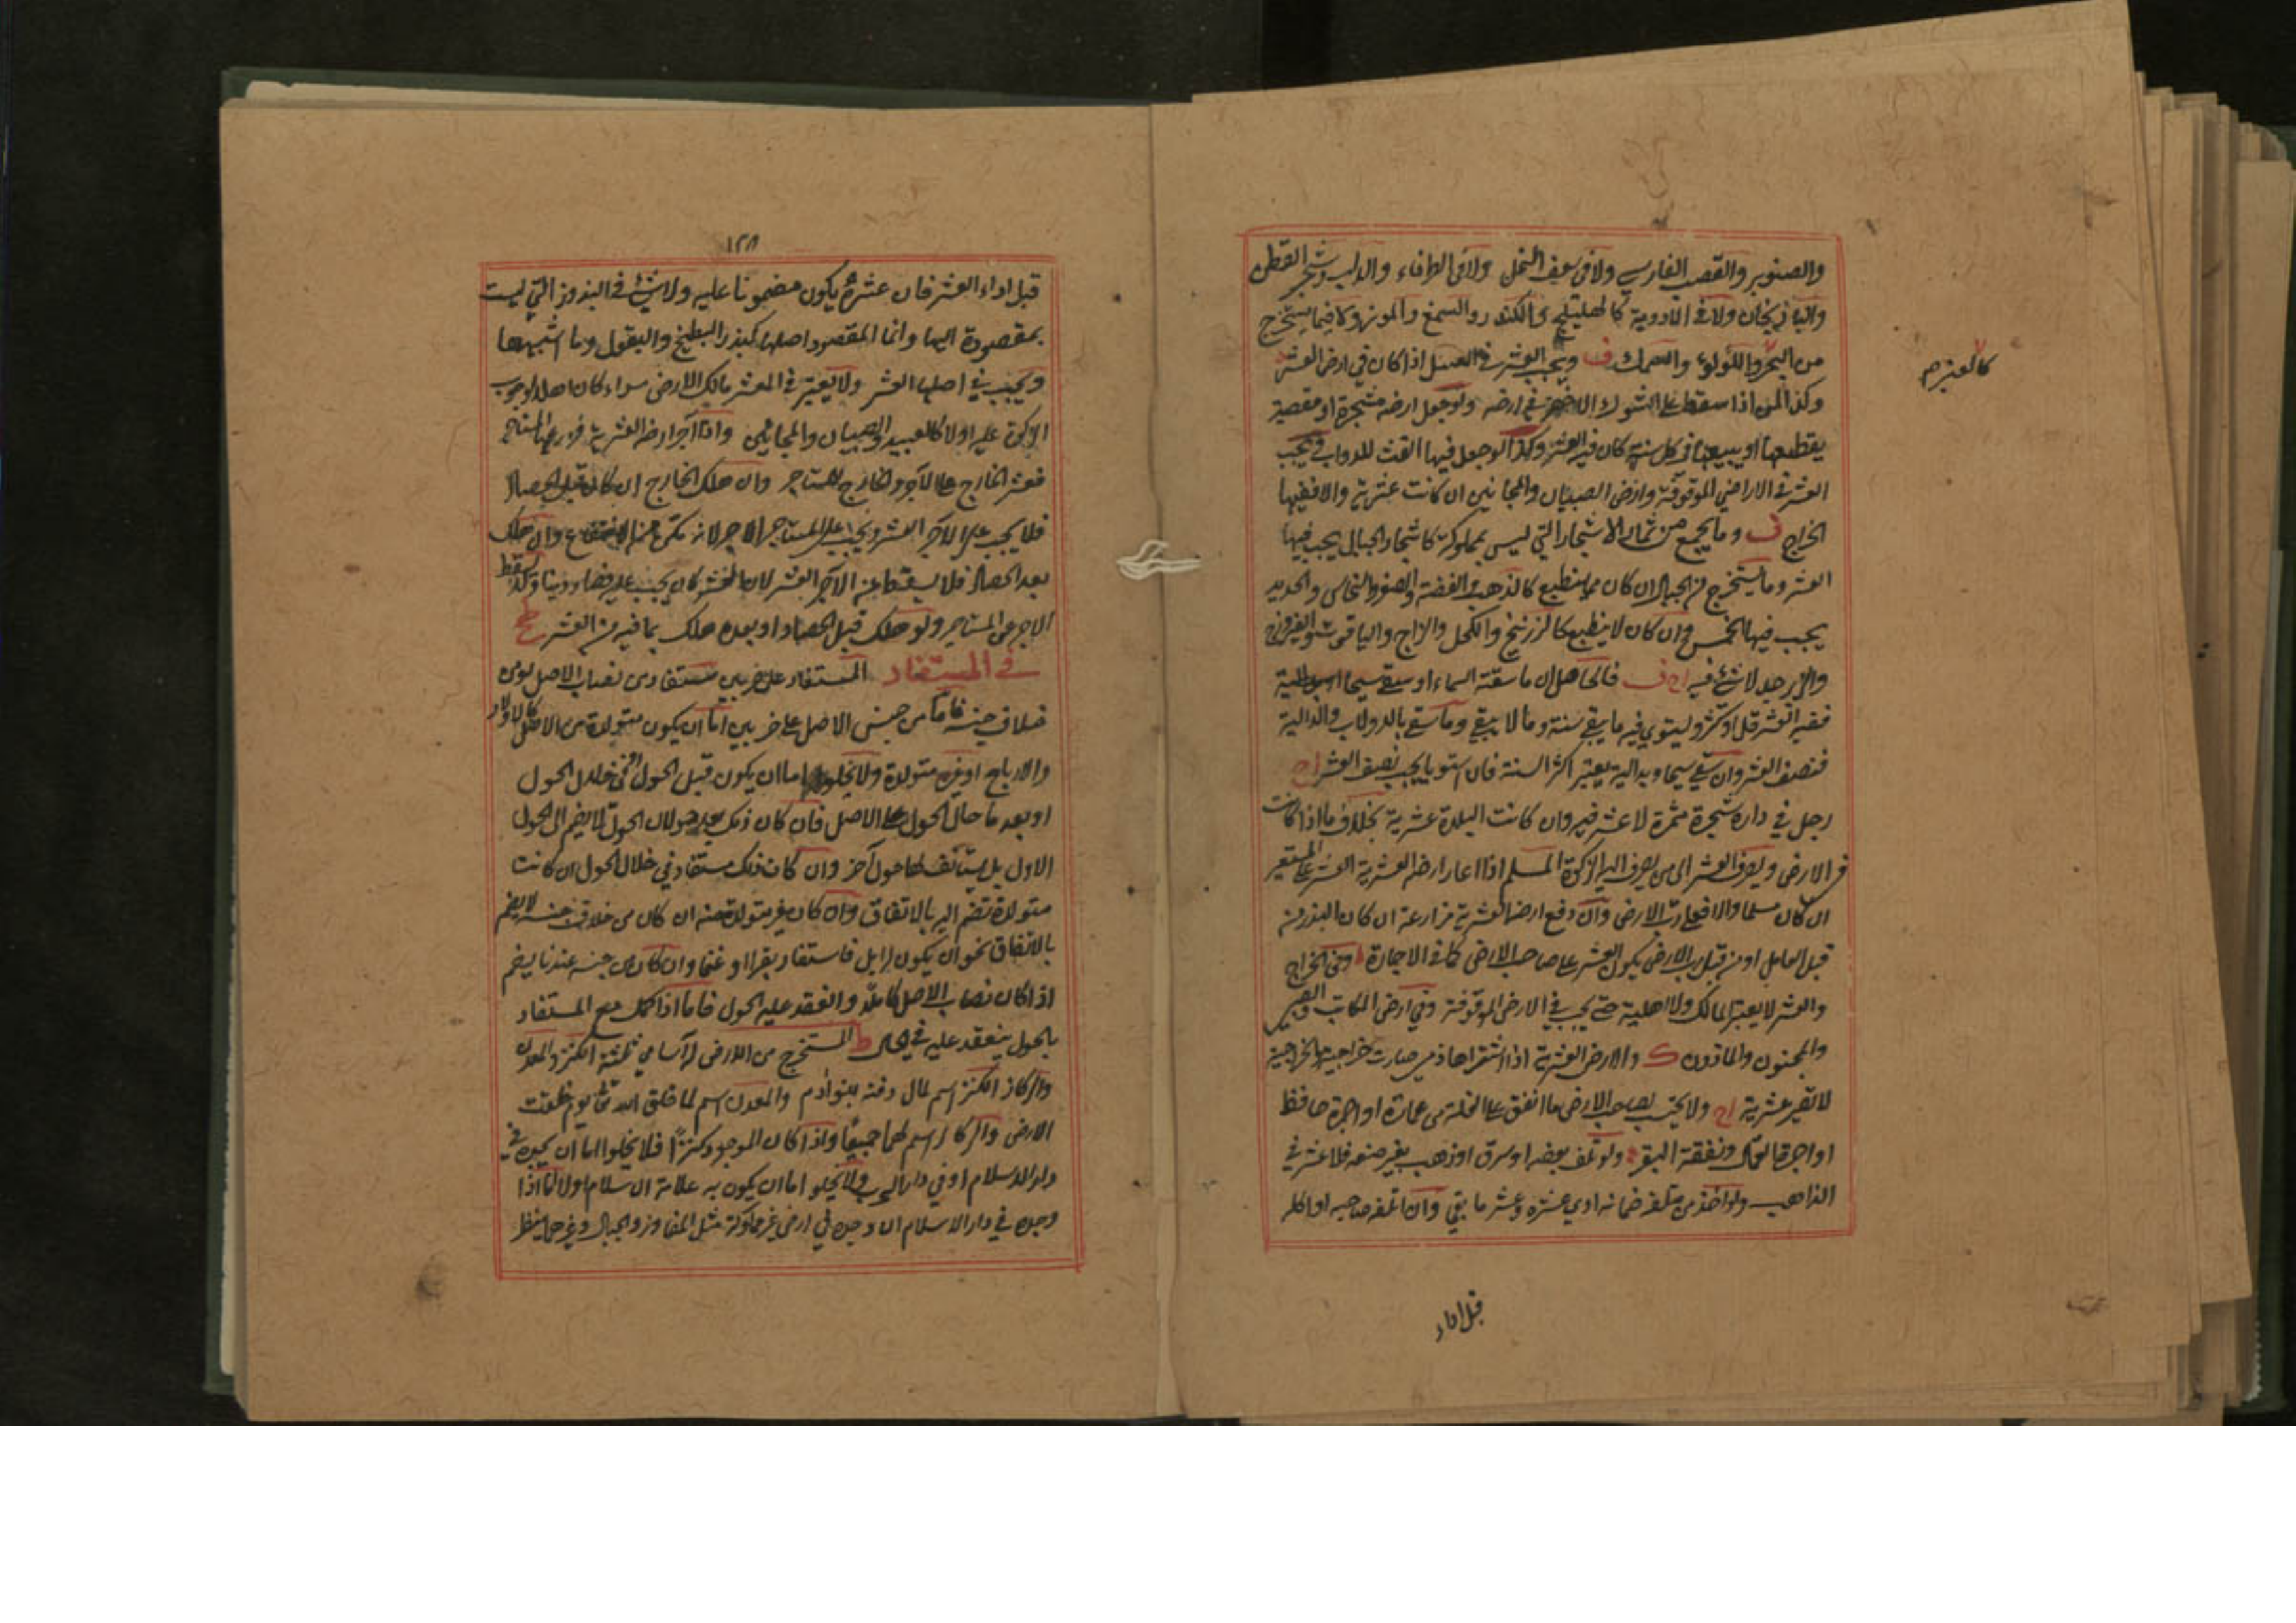 والصنوبر والقصب الفارسي ولا في سعف النخل ولا في الطرفاء والدلب وشجر القطن
والباذنجان ولا في الادوية كالهليلج والكندر والسمغ والموز ولا فيما يستخرج
من البحر واللؤلؤ والسمك ف ويجب العشر في العسل اذا كان في ارض العشر
كالعنبر م
وكذا المن اذا سقط على الشوك الاخضر في ارضه ولو جعل ارضه مشجرة او مقصبة
يقطعها او يبيعها في كل سنة كان فيه العشر وكذا لو جعل فيها القت للدواب ويجب
العشر في الاراضي الموقوفة وارض الصبيان والمجانين ان كانت عشرية والا ففيها
الخراج ف وما يجمع من ثمار الاشجار التي ليس بمملوكة كاشجار الجبال يجب فيها
العشر وما يستخرج من الجبال ان كان مما ينطبع كالذهب والفضة والصفر والنحاس والحديد
يجب فيها الخمس وان كان لا ينطبع كالزرنيخ والكحل والزاج والياقوت والفيروزج
والزبرجد لا شئ فيه ف فالحاصل ان ما سقته السماء او سقي سيحا
ففيه العشر قل او كثر ويستوي فيه ما يبقى سنة وما لا يبقى وما سقي بالدولاب والدالية
فنصف العشر وان سقي سيحا وبدالية يعتبر اكثر السنة فان استويا يجب نصف العشر
رجل في داره شجرة مثمرة لا عشر فيه وان كانت البلدة عشرية بخلاف ما اذا كانت
في الارض ويصرف العشر الى من يصرف اليه الزكوة المسلم اذا اعار ارضه العشرية العشر على المستعير
ان كان مسلما والا فعلى رب الارض وان دفع ارضه العشرية مزارعة ان كان البذر من
قبل العامل او من قبل رب الارض يكون العشر على صاحب الارض كما في الاجارة وفي الخراج
والعشر لا يعتبر المالك ولا اهلية حتى يجب في الارض الموقوفة وفي ارض المكاتب والصبي
والمجنون والماذون ك والارض العشرية اذا اشتراها ذمي صارت خراجية والخراجية
لا تصير عشرية ولا يحتسب لصاحب الارض ما انفق على الغلة من عمارة او اجرة حافظ
او اجرة العمال ونفقة البقر ولو تلف بعضه او سرق او ذهب بغير صنعه فلا عشر في
الذاهب ولو اخذ من متلفه ضمانه ادى عشره وعشر ما بقي وان اتلفه صاحبه او اكله
قبل اداء
١٢٨
قبل اداء العشر فان عشره يكون مضمونا عليه ولا شئ في البذور التي ليست
بمقصودة اليها وانما المقصود اصلها كبذر البطيخ والبقول وما اشبهها
ويجب في اصلها العشر ولا يعتبر في العشر مالك الارض سواء كان اهلا لوجوب
الزكوة عليه او لا كالعبيد والصبيان والمجانين واذا آجر ارضه العشرية فزرعها المستاجر
فعشر الخارج على الآجر والخارج للمستاجر وان هلك الخارج ان كان قبل الحصاد
فلا يجب على الآجر العشر ويجب على المستاجر الاجر لانه تمكن من الانتفاع وان هلك
بعد الحصاد فلا يسقط عن الآجر العشر لان العشر كان يجب عليه فصار دينا ولا يسقط
الاجر عن المستاجر ولو هلك قبل الحصاد او بعده هلك بما فيه من العشر
في المستفاد المستفاد على ضربين مستفاد من نصاب الاصل ومن
خلاف جنسه فاما من جنس الاصل على ضربين اما ان يكون متولدة من الاصل كالاولاد
والارباح او غير متولدة ولا يخلو اما ان يكون قبل الحول او في خلال الحول
او بعد ما حال الحول على الاصل فان كان ذلك بعد حولان الحول لا يضم الى الحول
الاول بل يستأنف لها حول آخر وان كان ذلك مستفاد في خلال الحول ان كانت
متولدة تضم اليه بالاتفاق وان كان غير متولدة منه ان كان من خلاف جنسه لا يضم
بالاتفاق نحو ان يكون له ابل فاستفاد بقرا او غنما وان كان من جنسه عندنا يضم
اذا كان نصاب الاصل كاملا وانعقد عليه الحول فاما اذا كمل مع المستفاد
بالحول ينعقد عليه في الحال ط المستخرج من الارض له اسامي ثلثة الكنز والمعدن
والركاز الكنز اسم لمال دفنه بنو آدم والمعدن اسم لما خلق الله تعالى يوم خلقت
الارض والركاز اسم لهما جميعا واذا كان الموجود كنزا فلا يخلوا اما ان يجده في
دار الاسلام او في دار الحرب ولا يخلو اما ان يكون به علامة الاسلام او لا فاذا
وجده في دار الاسلام ان وجده في ارض غير مملوكة مثل المفاوز والجبال وغيرهما ينظر